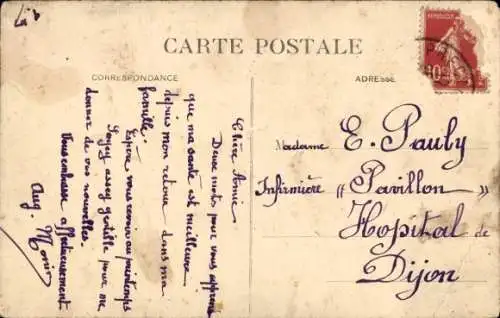 CARTE POSTALE
CORRESPONDANCE
ADRESSE
Chère Amie
Deux mots pour vous apprendre
que ma santé est meilleure
depuis mon retour dans ma
famille.
Espère vous revoir au printemps
Soyez assez gentille pour me
donner de vos nouvelles.
Vous embrasse affectueusement
Aug. Monin
Madame E. Pauly
Infirmière "Pavillon"
Hopital de
Dijon